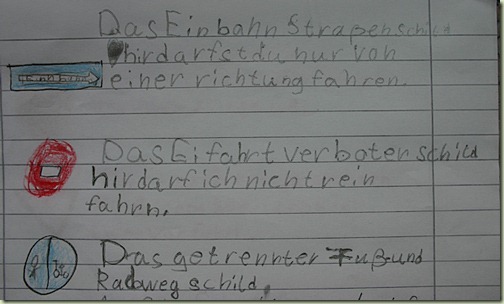 Das Einbahn Straßenschild
hir darfst du nur von
einer richtung fahren.
Das Eifahrt verboten schild
hir darf ich nicht rein
fahrn.
Das getrennter Fuß-und
Radweg schild.